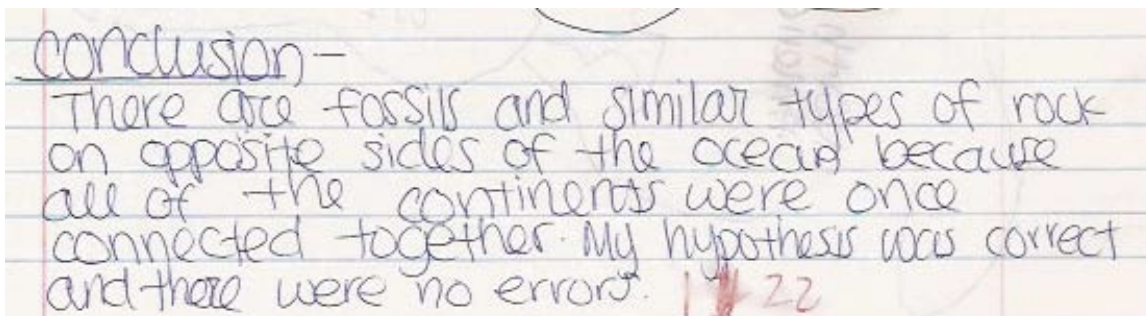 Conclusion-
There are fossils and similar types of rock
on opposite sides of the ocean because
all of the continents were once
connected together. My hypothesis was correct
and there were no errors. 22